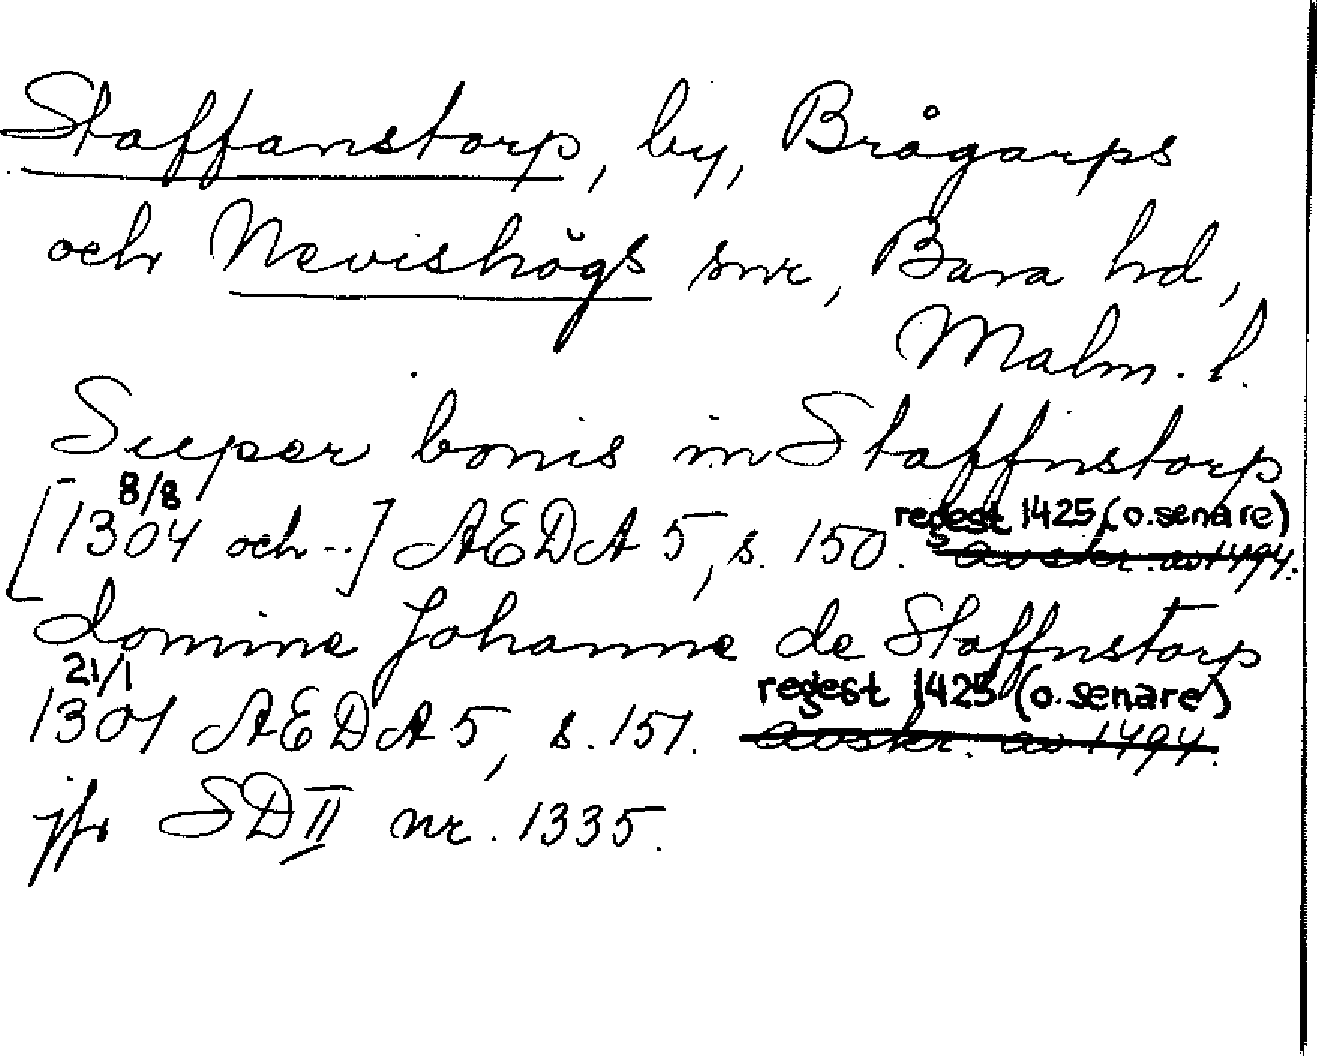 Staffanstorp, by, Brågarps
och Nevishögs snr, Bara hd,
Malm. l.
Super bonis in Staffnstorp
8/8
[1304 och --] AEDA 5, s. 150. regest 1425 (o. senare)
avskr. av 1494.
domine Johanne de Staffnstorp
21/1
1301 AEDA 5, s. 151. regest 1425 (o. senare)
avskr. av 1494.
jfr SD II nr. 1335.